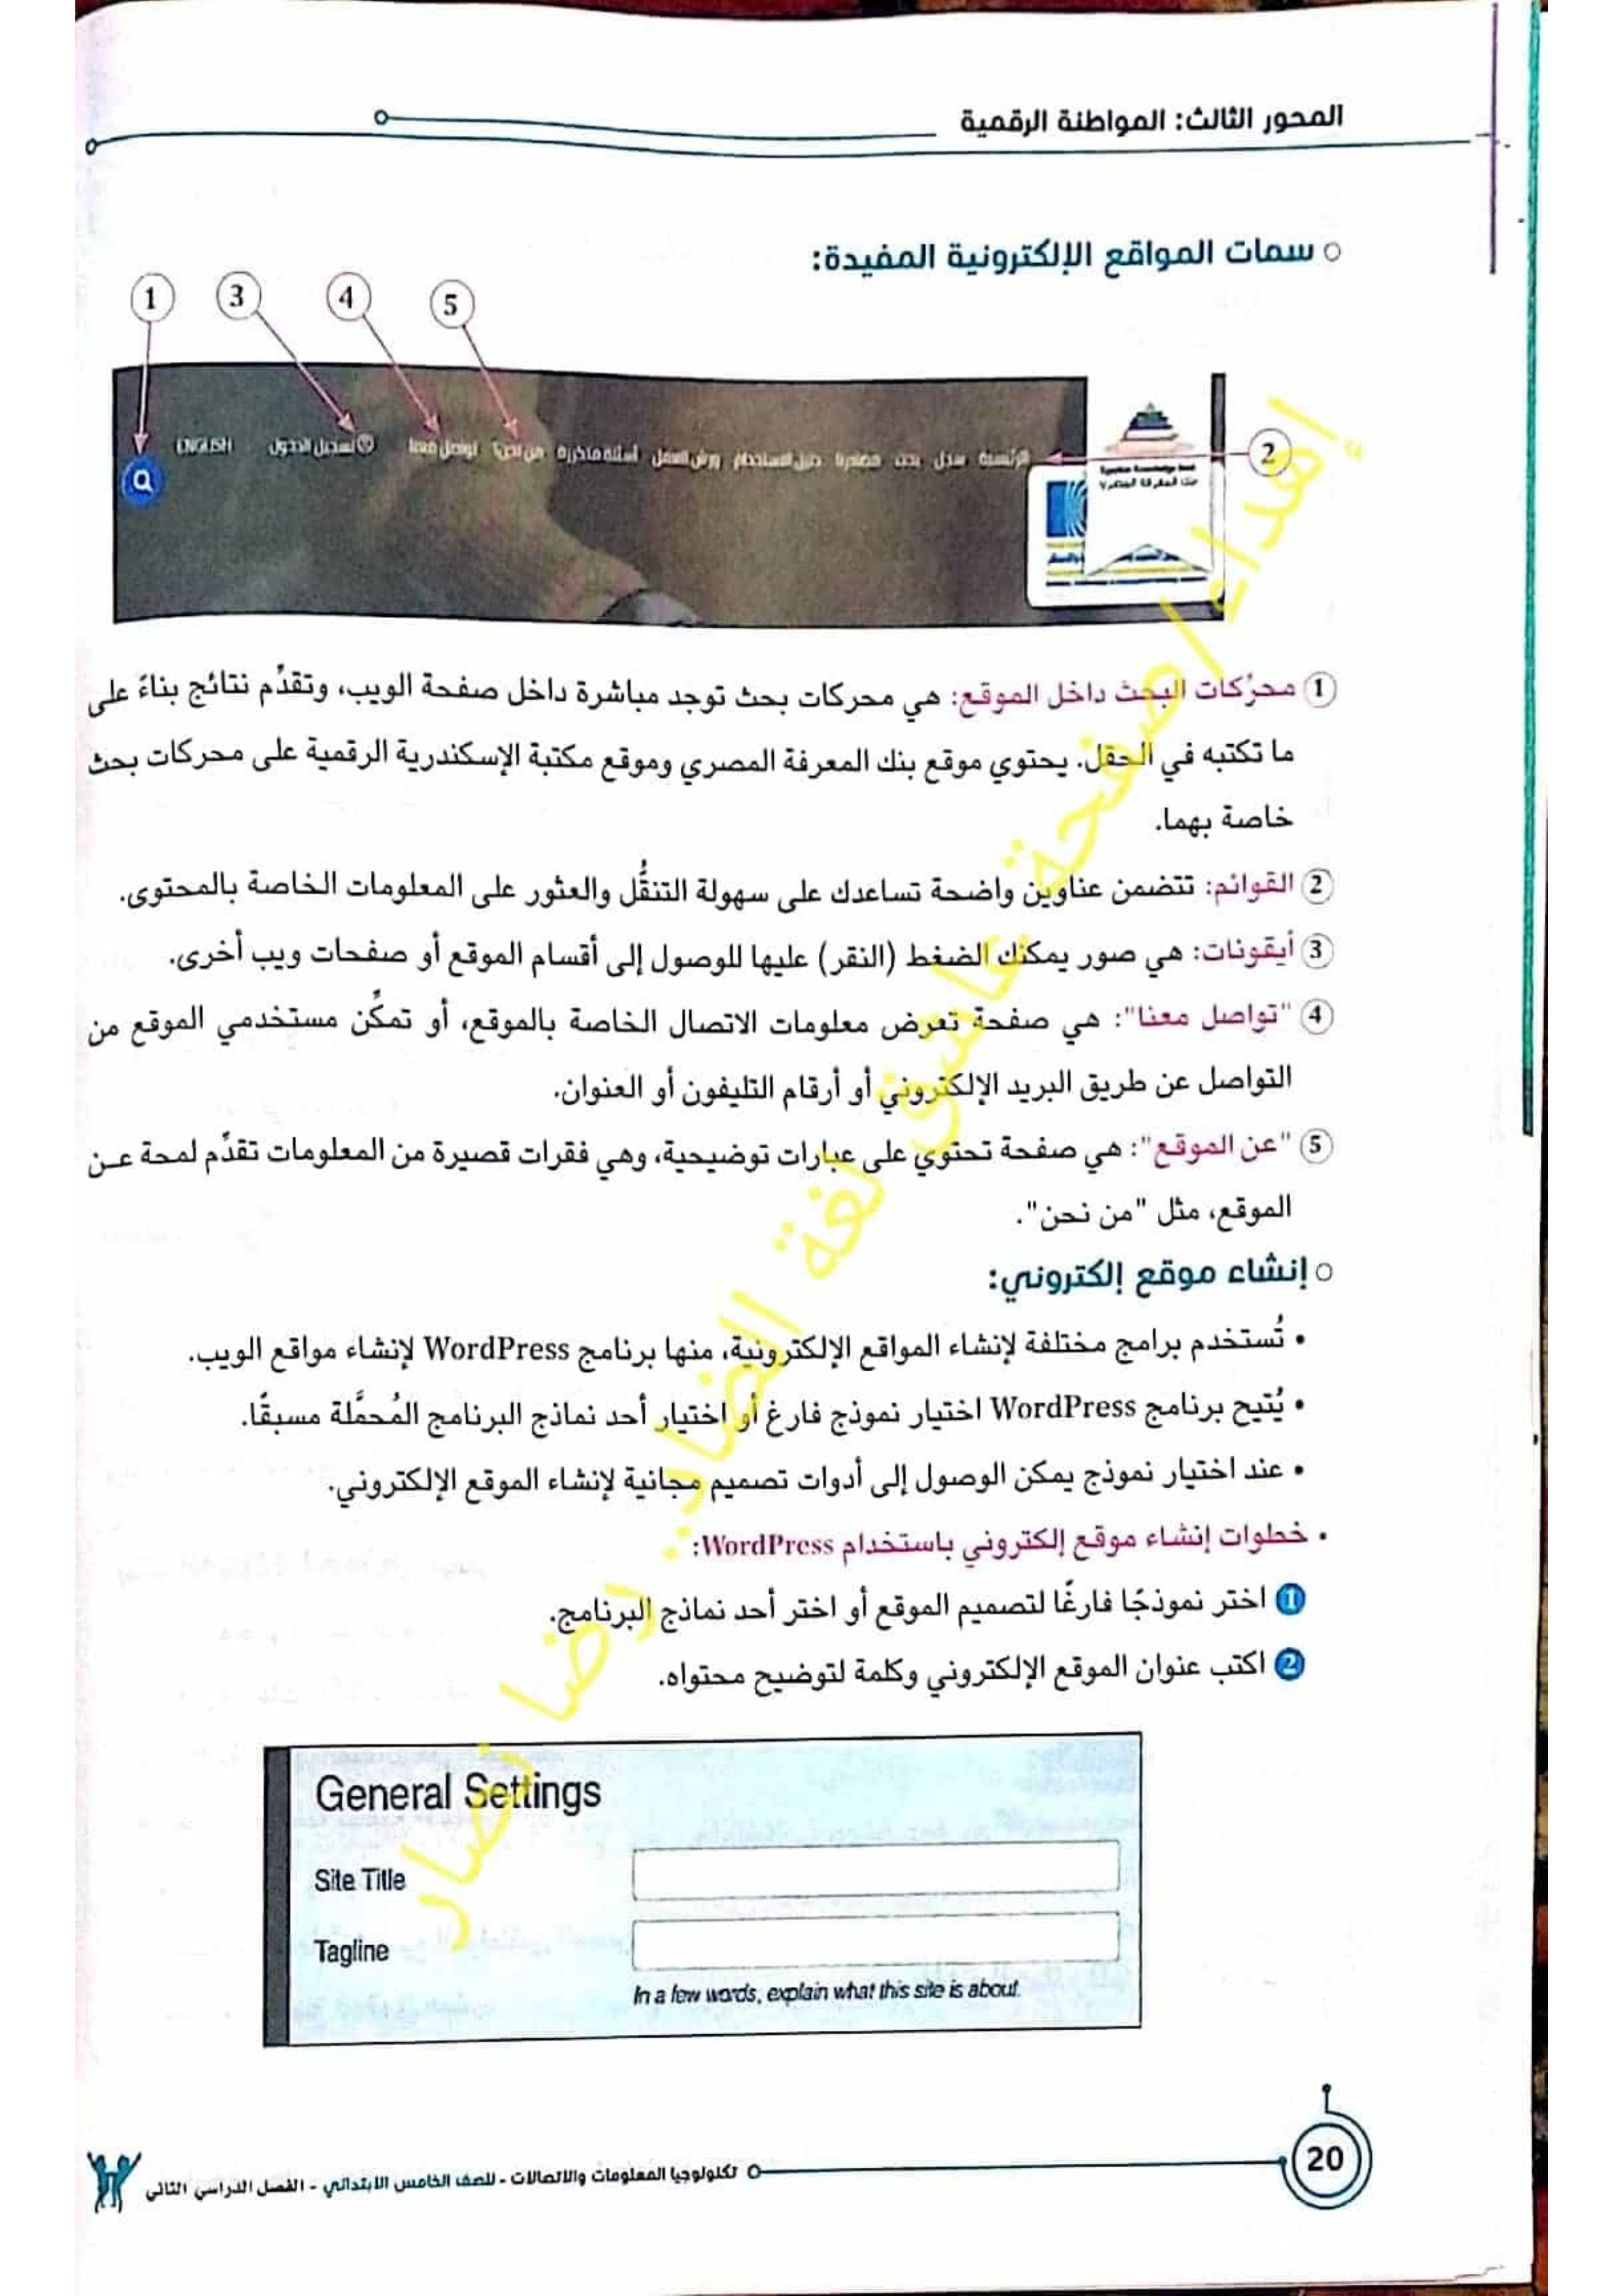 المحور الثالث: المواطنة الرقمية
سمات المواقع الإلكترونية المفيدة:
1 3 4 5
الرئيسية سجل بحث مصادرنا دليل الاستخدام ورش العمل أسئلة متكررة من نحن؟ تواصل معنا تسجيل الدخول ENGLISH
2
Egyptian Knowledge Bank
بنك المعرفة المصري
1 محرِّكات البحث داخل الموقع: هي محركات بحث توجد مباشرة داخل صفحة الويب، وتقدِّم نتائج بناءً على
ما تكتبه في الحقل. يحتوي موقع بنك المعرفة المصري وموقع مكتبة الإسكندرية الرقمية على محركات بحث
خاصة بهما.
2 القوائم: تتضمن عناوين واضحة تساعدك على سهولة التنقُّل والعثور على المعلومات الخاصة بالمحتوى.
3 أيقونات: هي صور يمكنك الضغط (النقر) عليها للوصول إلى أقسام الموقع أو صفحات ويب أخرى.
4 "تواصل معنا": هي صفحة تعرض معلومات الاتصال الخاصة بالموقع، أو تمكِّن مستخدمي الموقع من
التواصل عن طريق البريد الإلكتروني أو أرقام التليفون أو العنوان.
5 "عن الموقع": هي صفحة تحتوي على عبارات توضيحية، وهي فقرات قصيرة من المعلومات تقدِّم لمحة عن
الموقع، مثل "من نحن".
إنشاء موقع إلكتروني:
• تُستخدم برامج مختلفة لإنشاء المواقع الإلكترونية، منها برنامج WordPress لإنشاء مواقع الويب.
• يُتيح برنامج WordPress اختيار نموذج فارغ أو اختيار أحد نماذج البرنامج المُحمَّلة مسبقًا.
• عند اختيار نموذج يمكن الوصول إلى أدوات تصميم مجانية لإنشاء الموقع الإلكتروني.
• خطوات إنشاء موقع إلكتروني باستخدام WordPress:
1 اختر نموذجًا فارغًا لتصميم الموقع أو اختر أحد نماذج البرنامج.
2 اكتب عنوان الموقع الإلكتروني وكلمة لتوضيح محتواه.
General Settings
Site Title
Tagline
In a few words, explain what this site is about.
20
تكنولوجيا المعلومات والاتصالات - للصف الخامس الابتدائي - الفصل الدراسي الثاني
إهداء/صفحة عاشق لغة الضاد.. رضا نصار